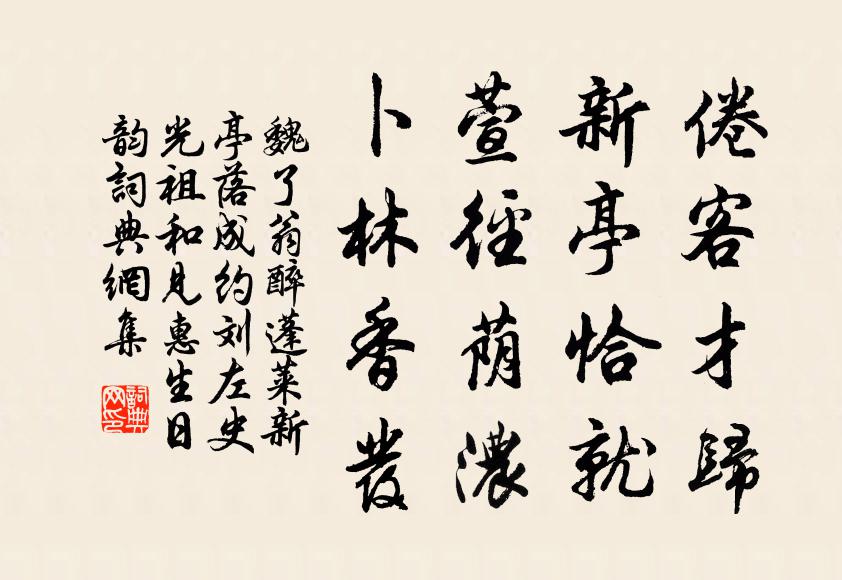 倦客才歸
新亭恰就
萱徑荫濃
卜林香發
魏了翁醉蓬萊新
亭落成約刘左史
光祖和見惠生日
韵詞典網集
詞典
网印